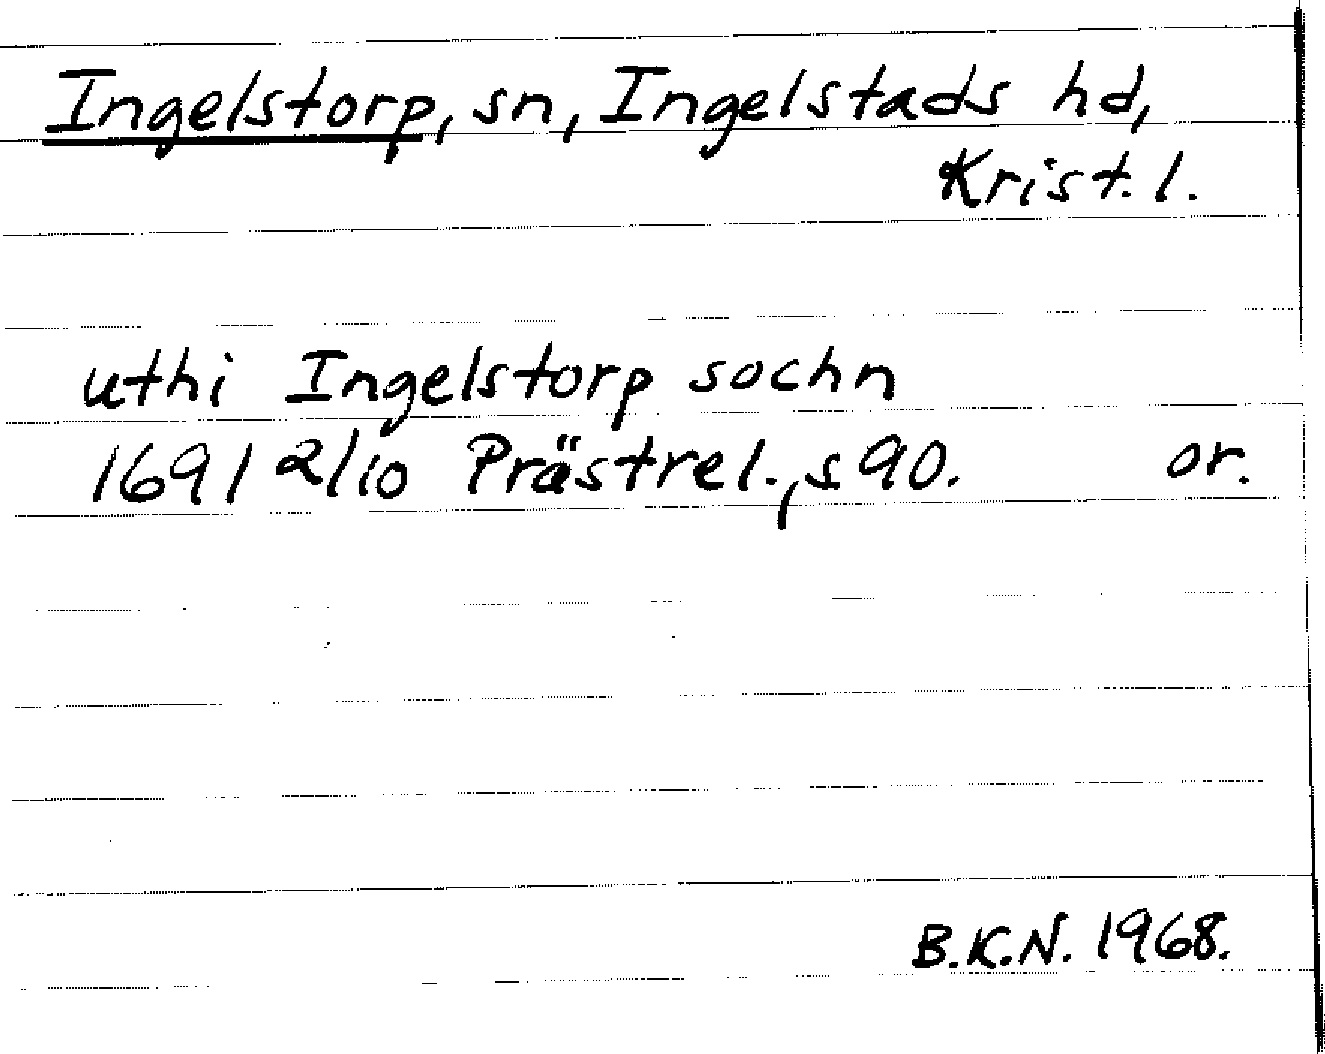 Ingelstorp, sn, Ingelstads hd,
Krist. l.
uthi Ingelstorp sochn
1691 2/10 Prästrel., s 90. or.
B.K.N. 1968.